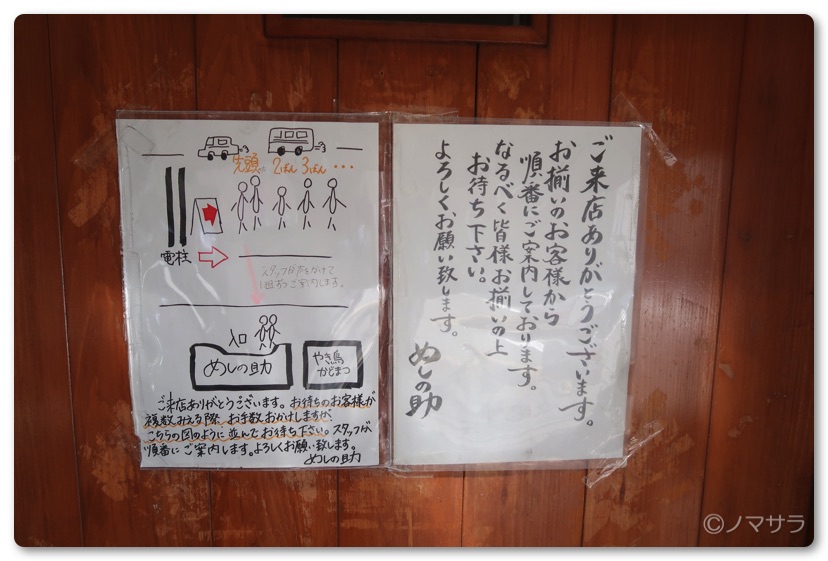 先頭 2ばん 3ばん ・・・
電柱
スタッフが声をかけて
1組ずつご案内します。
入口
めしの助
やき鳥
かどまつ
ご来店ありがとうございます。お待ちのお客様が
複数みえる際、お手数おかけしますが、
こちらの図のように並んでお待ち下さい。スタッフが
順番にご案内します。よろしくお願い致します。
めしの助
ご来店ありがとうございます。
お揃いのお客様から
順番にご案内しております。
なるべく皆様お揃いの上
お待ち下さい。
よろしくお願い致します。
めしの助
©ノマサラ